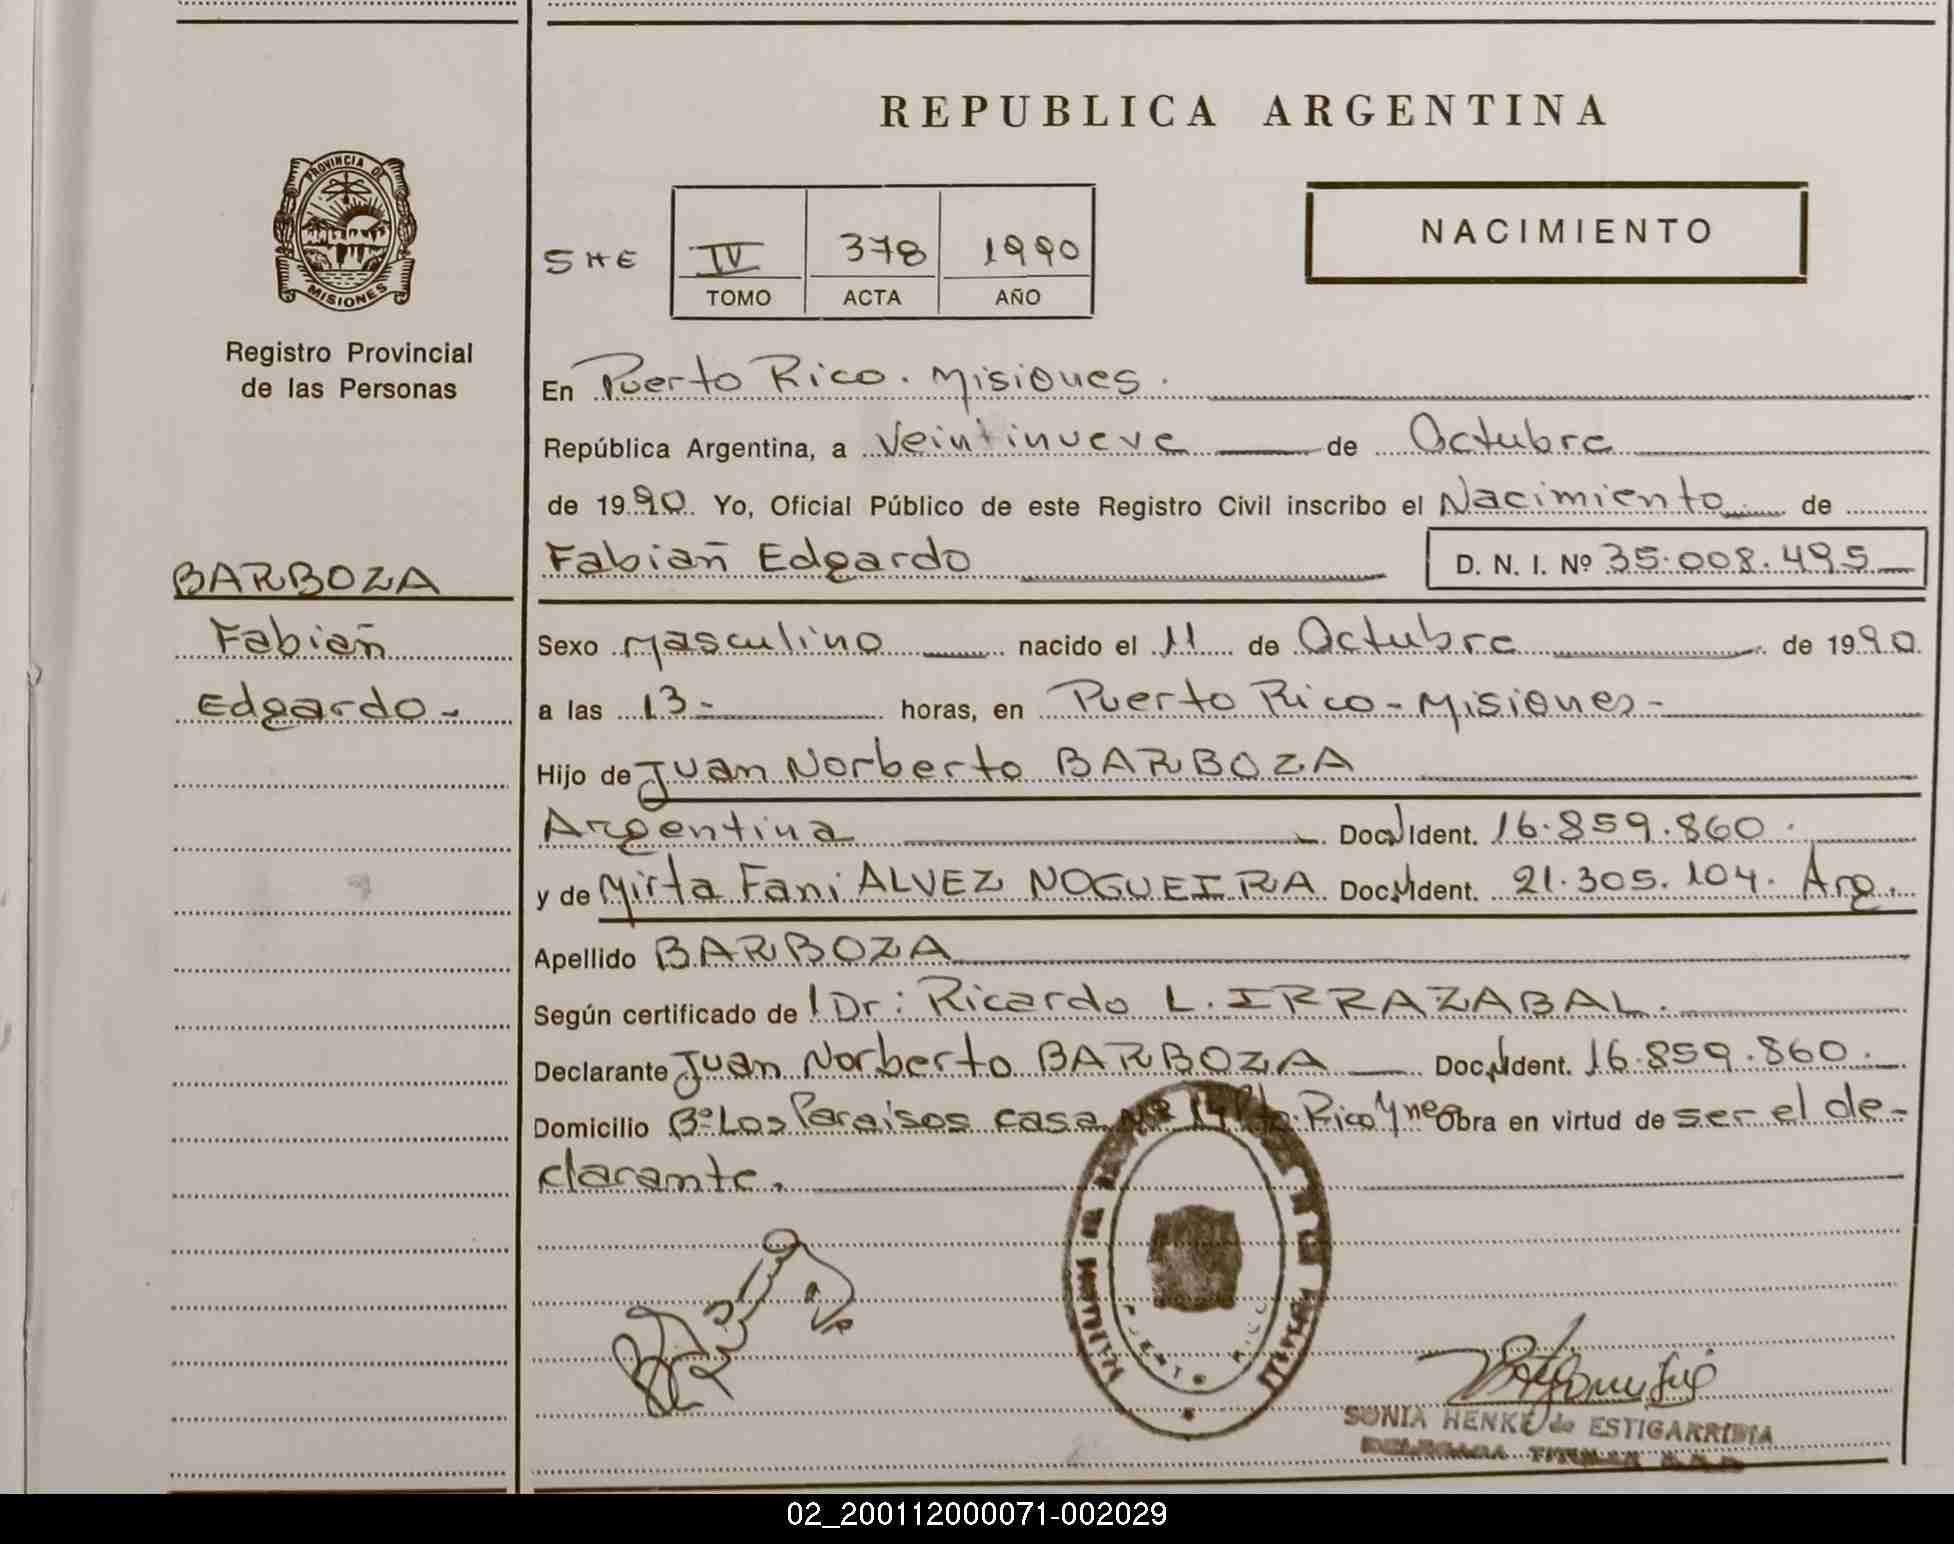 REPUBLICA ARGENTINA
PROVINCIA DE
MISIONES
Registro Provincial
de las Personas
SHE
IV 378 1990
TOMO ACTA AÑO
NACIMIENTO
En Puerto Rico. Misiones.
República Argentina, a Veintinueve de Octubre
de 1990 Yo, Oficial Público de este Registro Civil inscribo el Nacimiento de
Fabiañ Edgardo
D. N. I. Nº 35.008.495
BARBOZA
Fabiañ
Edgardo -
Sexo Masculino nacido el 11 de Octubre de 1990
a las 13- horas, en Puerto Rico - Misiones -
Hijo de Juan Norberto BARBOZA
Argentina Doc. Ident. 16.859.860.
y de Mirta Fani ALVEZ NOGUEIRA Doc. Ident. 21.305.104. Arg.
Apellido BARBOZA
Según certificado de l Dr: Ricardo L. IRRAZABAL.
Declarante Juan Norberto BARBOZA Doc. Ident. 16.859.860.
Domicilio Bº Los Paraisos casa Nº Rico Mnes Obra en virtud de ser el de-
clarante.
PUERTO RICO
SONIA HENKE de ESTIGARRIBIA
DELEGADA TITULAR
02_200112000071-002029